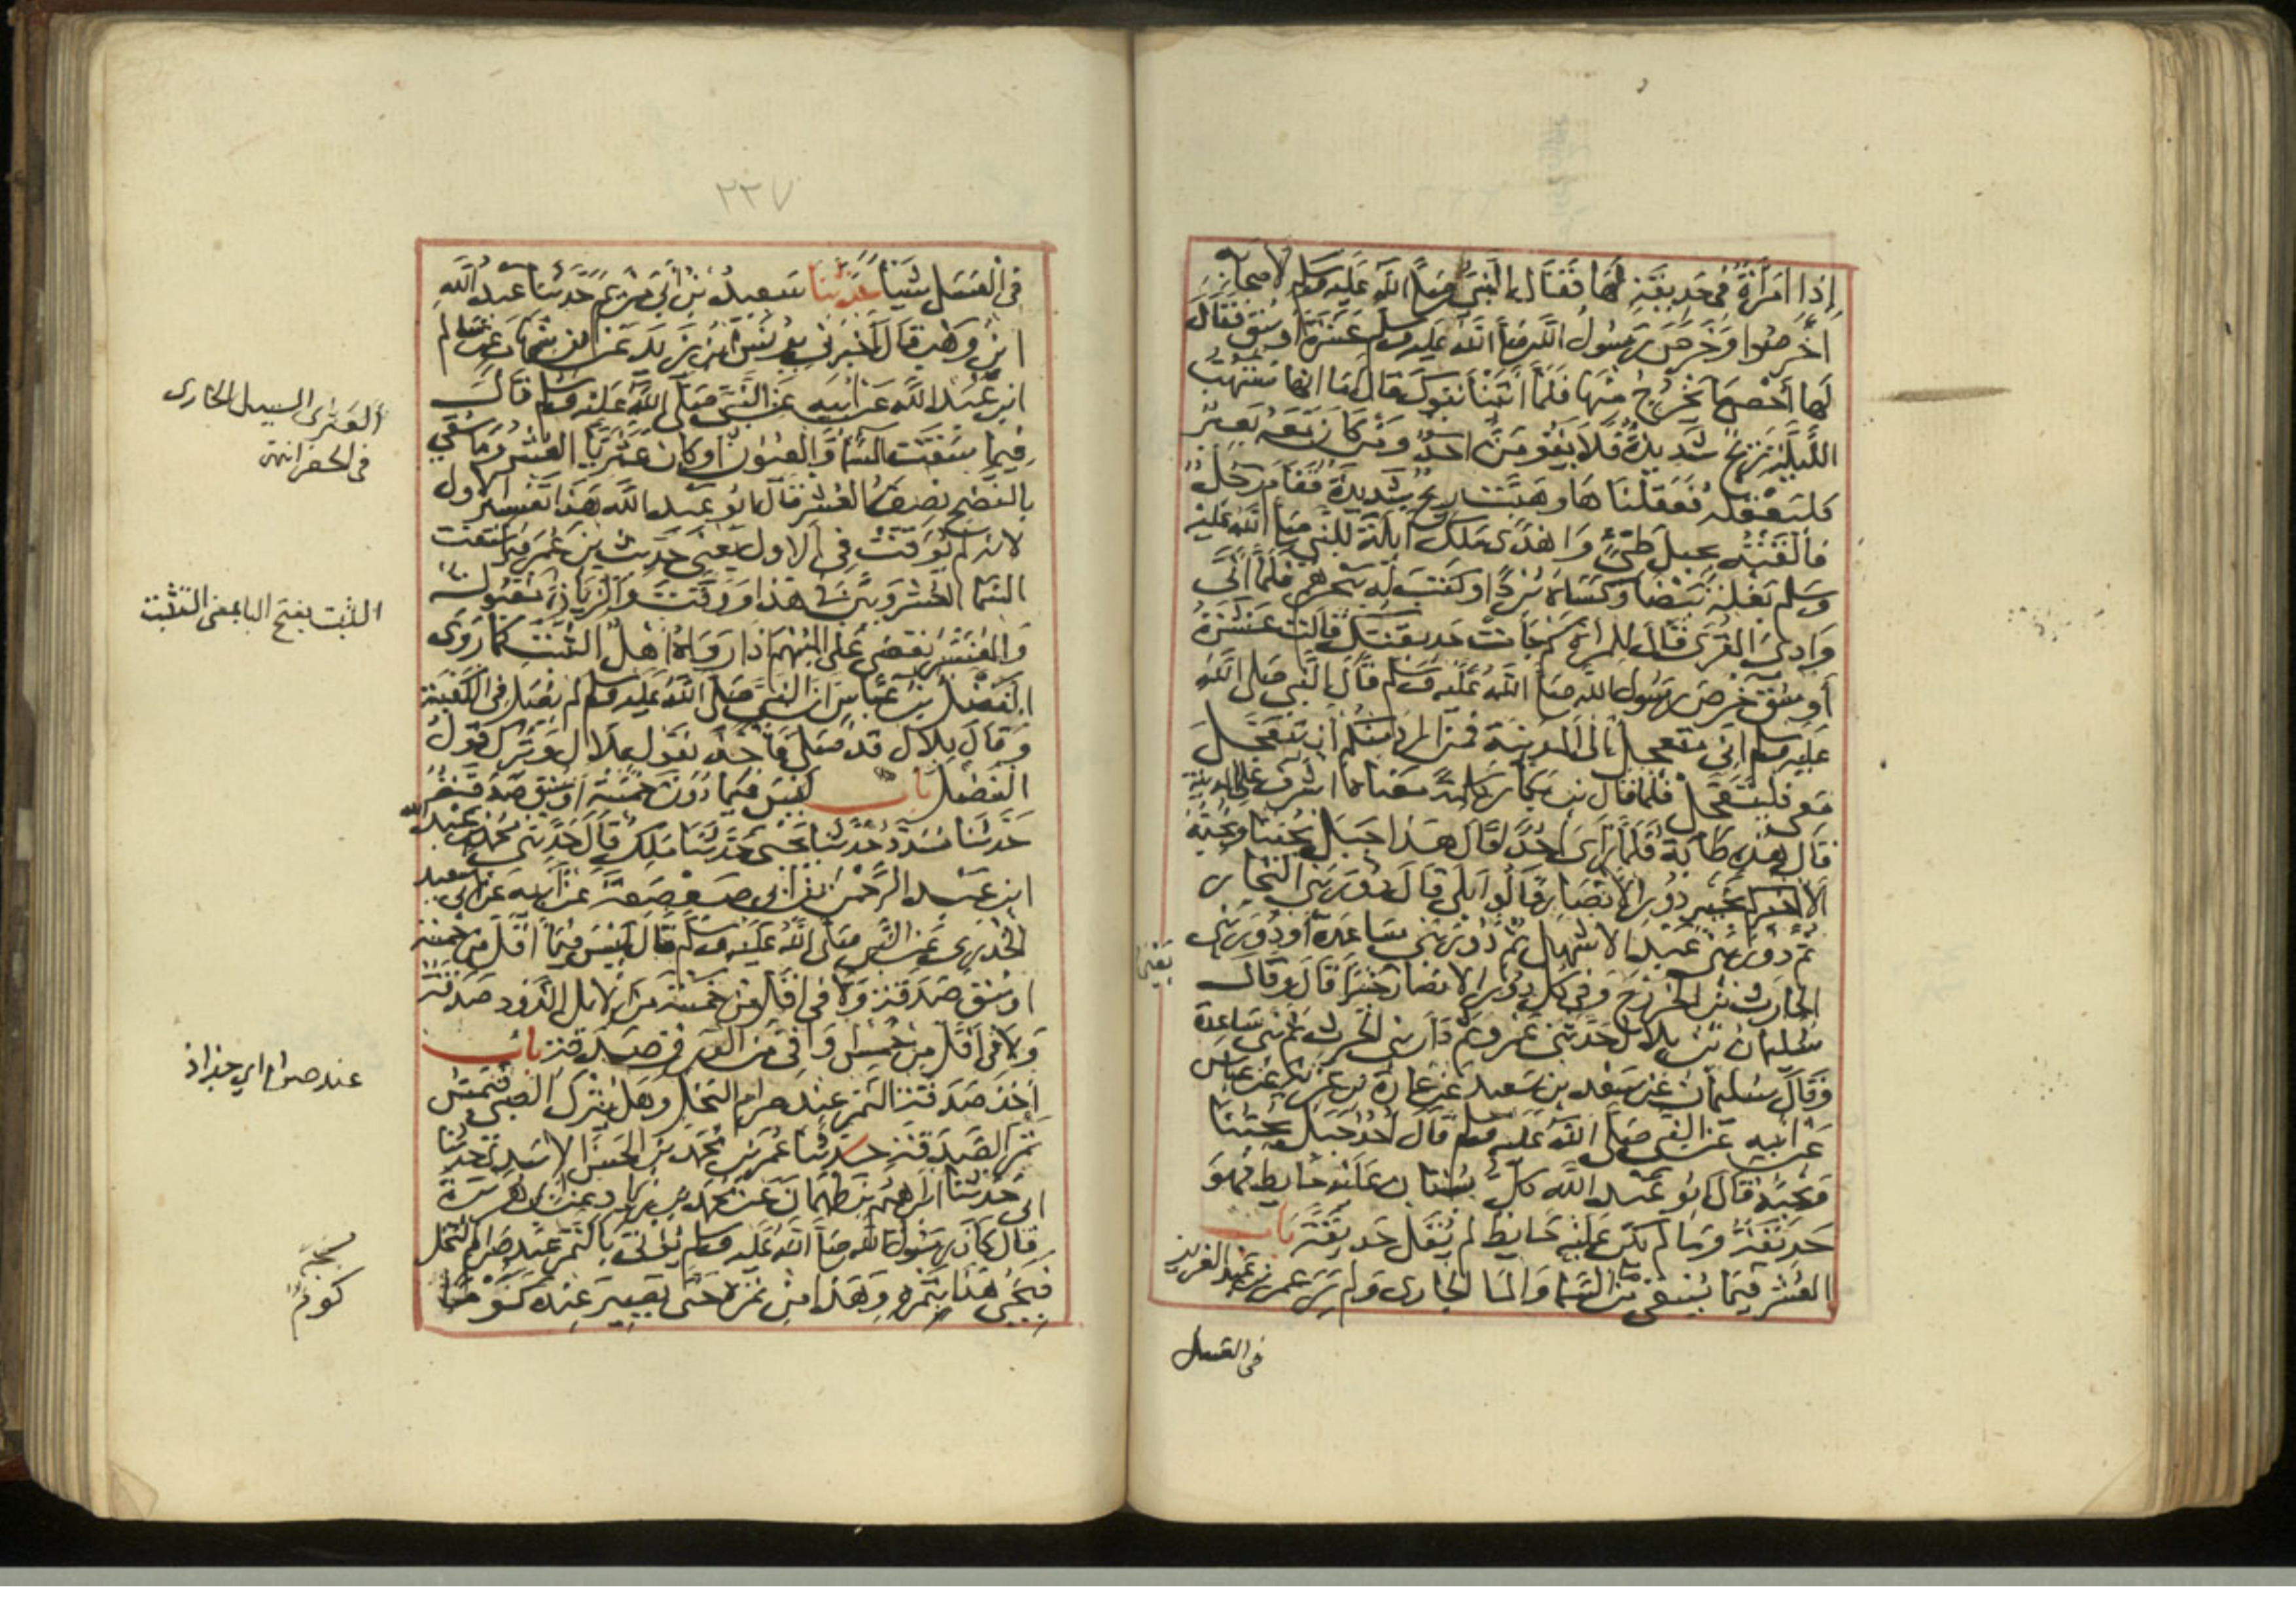 إذا امرأة في حديقة لها فقال النبي صلى الله عليه وسلم لاصحابه
اخرصوا وخرص رسول الله صلى الله عليه وسلم عشرة اوسق فقال
لها أحصي ما يخرج منها فلما أتينا تبوك قال اما انها ستهب
الليلة ريح شديدة فلا يقومن احد ومن كان معه بعير
فليعقله فعقلناها وهبت ريح شديدة فقام رجل
فألقته بجبل طيئ واهدى ملك ايلة للنبي صلى الله عليه
وسلم بغلة بيضا وكساه بردا وكتب له ببحرهم فلما أتى
وادى القرى قال للمرأة كم جات حديقتك قالت عشرة
أوسق خرص رسول الله صلى الله عليه وسلم قال النبي صلى الله
عليه وسلم اني متعجل الى المدينة فمن اراد منكم أن يتعجل
معى فليتعجل فلما قال بن بكار كلمة معناها اشرف على المدينة
قال هذه طابة فلما رأى احدا قال هذا جبل يحبنا ونحبه
ألا اخبركم بخير دور الانصار قالوا بلى قال دور بني النجار
ثم دور بني عبد الاشهل ثم دور بني ساعدة أو دور بني
الحارث بن الخزرج وفي كل دور الانصار خيرا قال وقال
يعنى
سليمان بن بلال حدثني عمرو ثم دار بني الحرث ثم بني ساعدة
وقال سليمان عن سعد بن سعيد عن عمارة بن غزية عن عباس
عن ابيه عن النبي صلى الله عليه وسلم قال احد جبل يحبنا
ونحبه قال ابو عبد الله كل بستان عليه حايط فهو
حديقة وما لم يكن عليه حايط لم يقل حديقة باب
العشر فيما يسقى من السما والما الجارى ولم ير عمر بن عبد العزيز
فى العسل
٢٣٧
في العسل شيئا حدثنا سعيد بن أبي مريم حدثنا عبد الله
ابن وهب قال أخبرني يونس بن يزيد عن ابن شهاب عن سالم
ابن عبد الله عن أبيه عن النبي صلى الله عليه وسلم قال
فيما سقت السما والعيون او كان عثريا العشر وما سقي
بالنضح نصف العشر قال ابو عبد الله هذا تفسير الاول
لانه لم يوقت في الاول يعنى حديث بن عمر فيما سقت
السما العشر وبين في هذا ووقت والزيادة مقبولة
والمفسر يقضي على المبهم اذا رواه اهل الثبت كما روى
الفضل بن عباس ان النبي صلى الله عليه وسلم لم يصل في الكعبة
وقال بلال قد صلى فأخذ بقول بلال وترك قول
الفضل باب ليس فيما دون خمسة اوسق صدقة
حدثنا مسدد حدثنا يحيى حدثنا ملك قال حدثني محمد بن عبد الله
ابن عبد الرحمن بن أبي صعصعة عن أبيه عن ابي سعيد
الخدرى عن النبي صلى الله عليه وسلم قال ليس فيما أقل من خمسة
اوسق صدقة ولا في اقل من خمسة من الابل الذود صدقة
ولا في أقل من خمس اواقى من الورق صدقة باب
أخذ صدقة التمر عند صرام النخل وهل يترك الصبي فيمس
تمر الصدقة حدثنا عمر بن محمد بن الحسن الاسدي حدثنا
ابي حدثنا ابراهيم بن طهمان عن محمد بن زياد عن ابي هريرة
قال كان رسول الله صلى الله عليه وسلم يؤتى بالتمر عند صرام النخل
فيجي هذا بتمره وهذا من تمره حتى يصير عنده كوما
ألعثرى السيل الجارى
فى الحفر انتهى
الثبت بفتح البا بمعنى التثبت
عند صرام اي جذاذ
نسخة
كوم